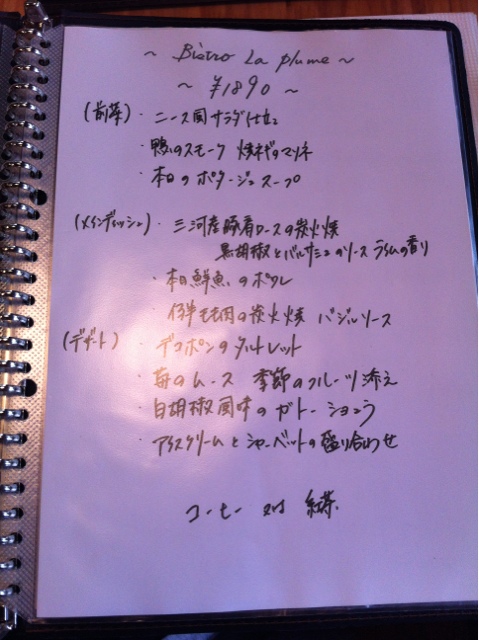 ~ Bistro La plume ~
~ ¥1890 ~
(前菜)・ニース風サラダ仕立
・鴨のスモーク 焼ネギのマリネ
・本日のポタージュスープ
(メインディッシュ)・三河産豚肩ロースの炭火焼
黒胡椒とバルサミコのソース ライムの香り
・本日鮮魚のポワレ
・仔羊モモ肉の炭火焼 バジルソース
(デザート)・デコポンのタルトレット
・苺のムース 季節のフルーツ添え
・白胡椒風味のガトーショコラ
・アイスクリームとシャーベットの盛り合わせ
コーヒー 又は 紅茶